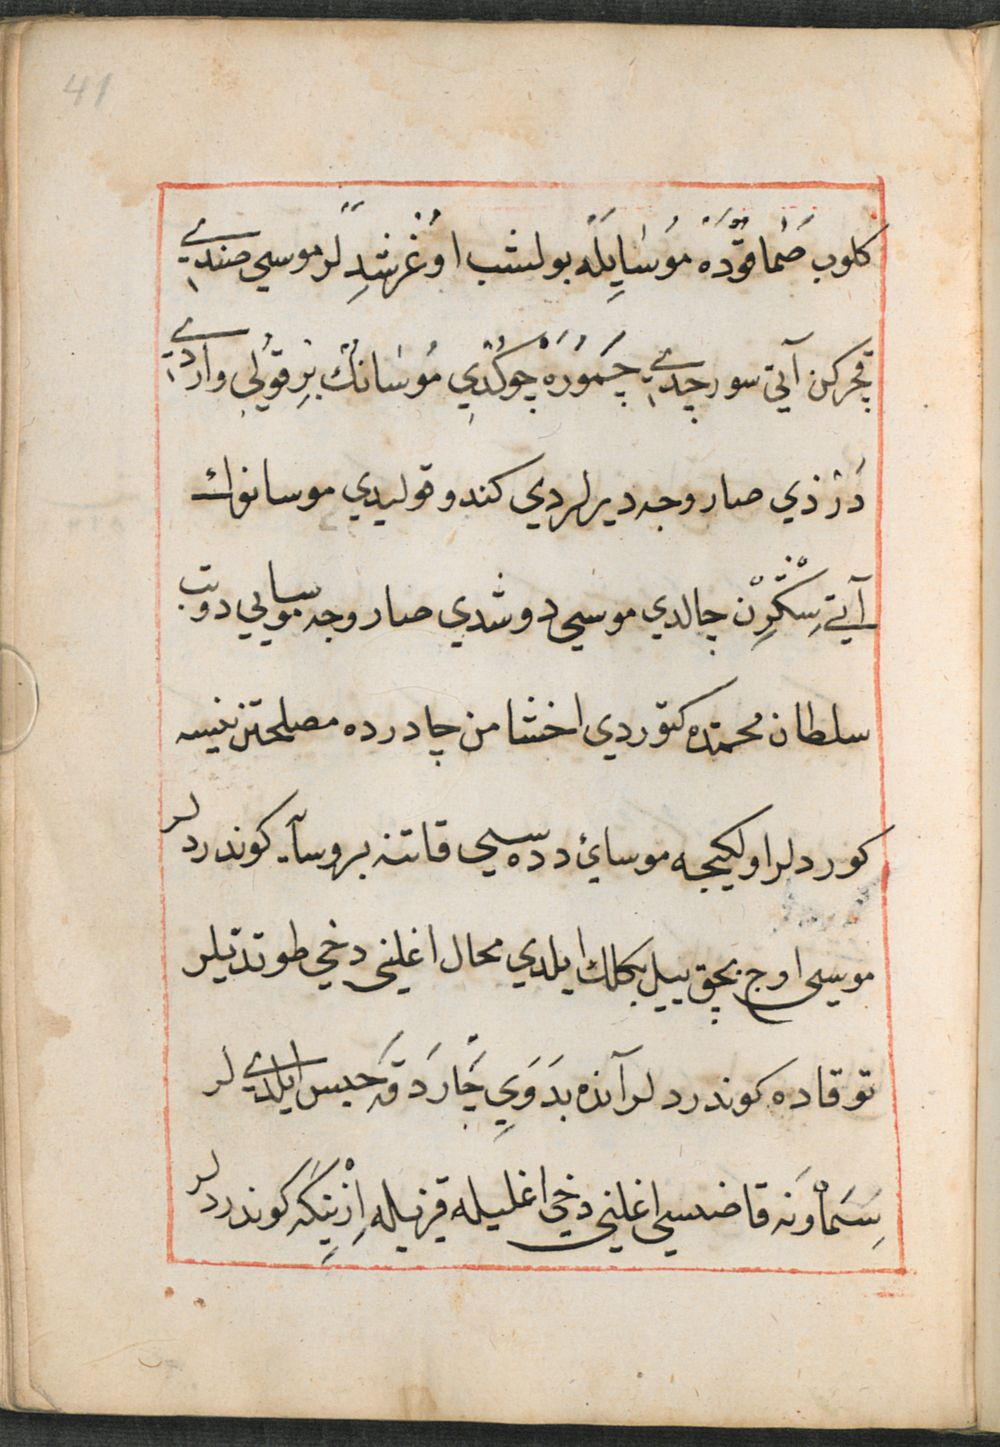 41
كلوب صَماقوُدَه مُوسٰايِلَه بولشب اوُغرَشدِلَر موسي صندي
قچركن آتي سورچدي چَمُورَه چوكُدِي مُوسٰانُك بِر قوُلِي واردي
دَرْذي صاروجه ديرلردي كندو قوليدي موسانوك
آتي سِكْرِن چالدي موسي دوشدي صاروجه موسايي دوتب
سلطان محمّده كتوردي اخشامن چادرده مصلحتن نيسه
كوردلر اولكيجه موسائ دده سي قاتنه بروسآيه كوندردلر
موسي اوچ بچق ييل بكلك ايلدي محال اغلني دخي طوتديلر
توقاده كوندردلر آنده بدَوَيِ چَاردَقَه حبس ايلديلر
سِمَاوْنَه قاضيسي اغلني دخي اغليله قزيله اِزْنِيكَه كوندردلر